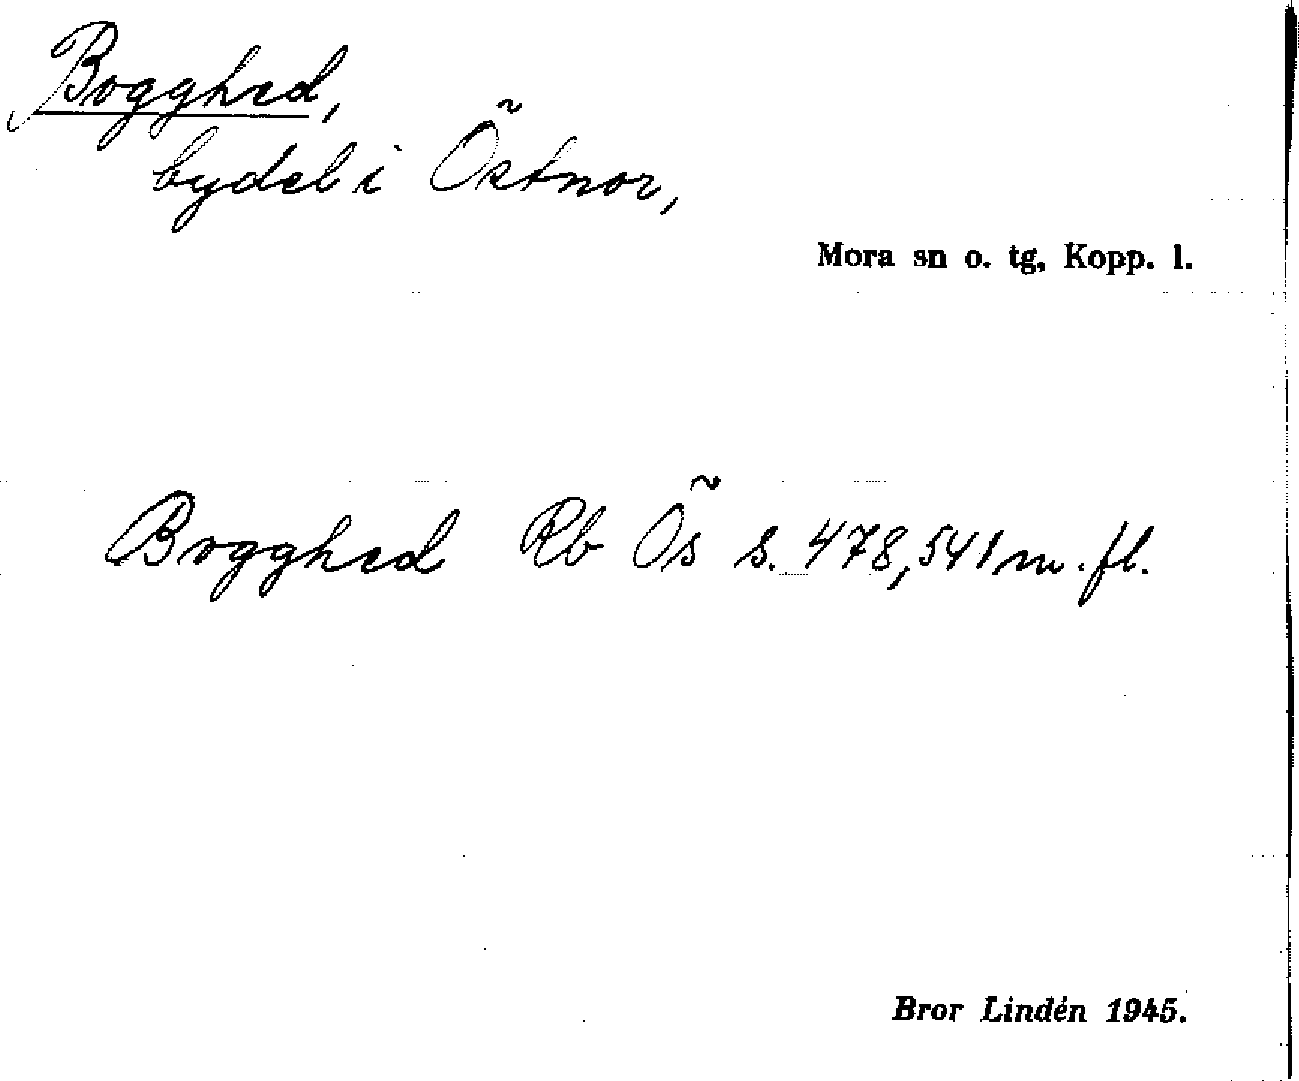 Bogghed,
bydel i Östnor,
Mora sn o. tg, Kopp. l.
Bogghed Rb Ös s. 478, 541 m. fl.
Bror Lindén 1945.